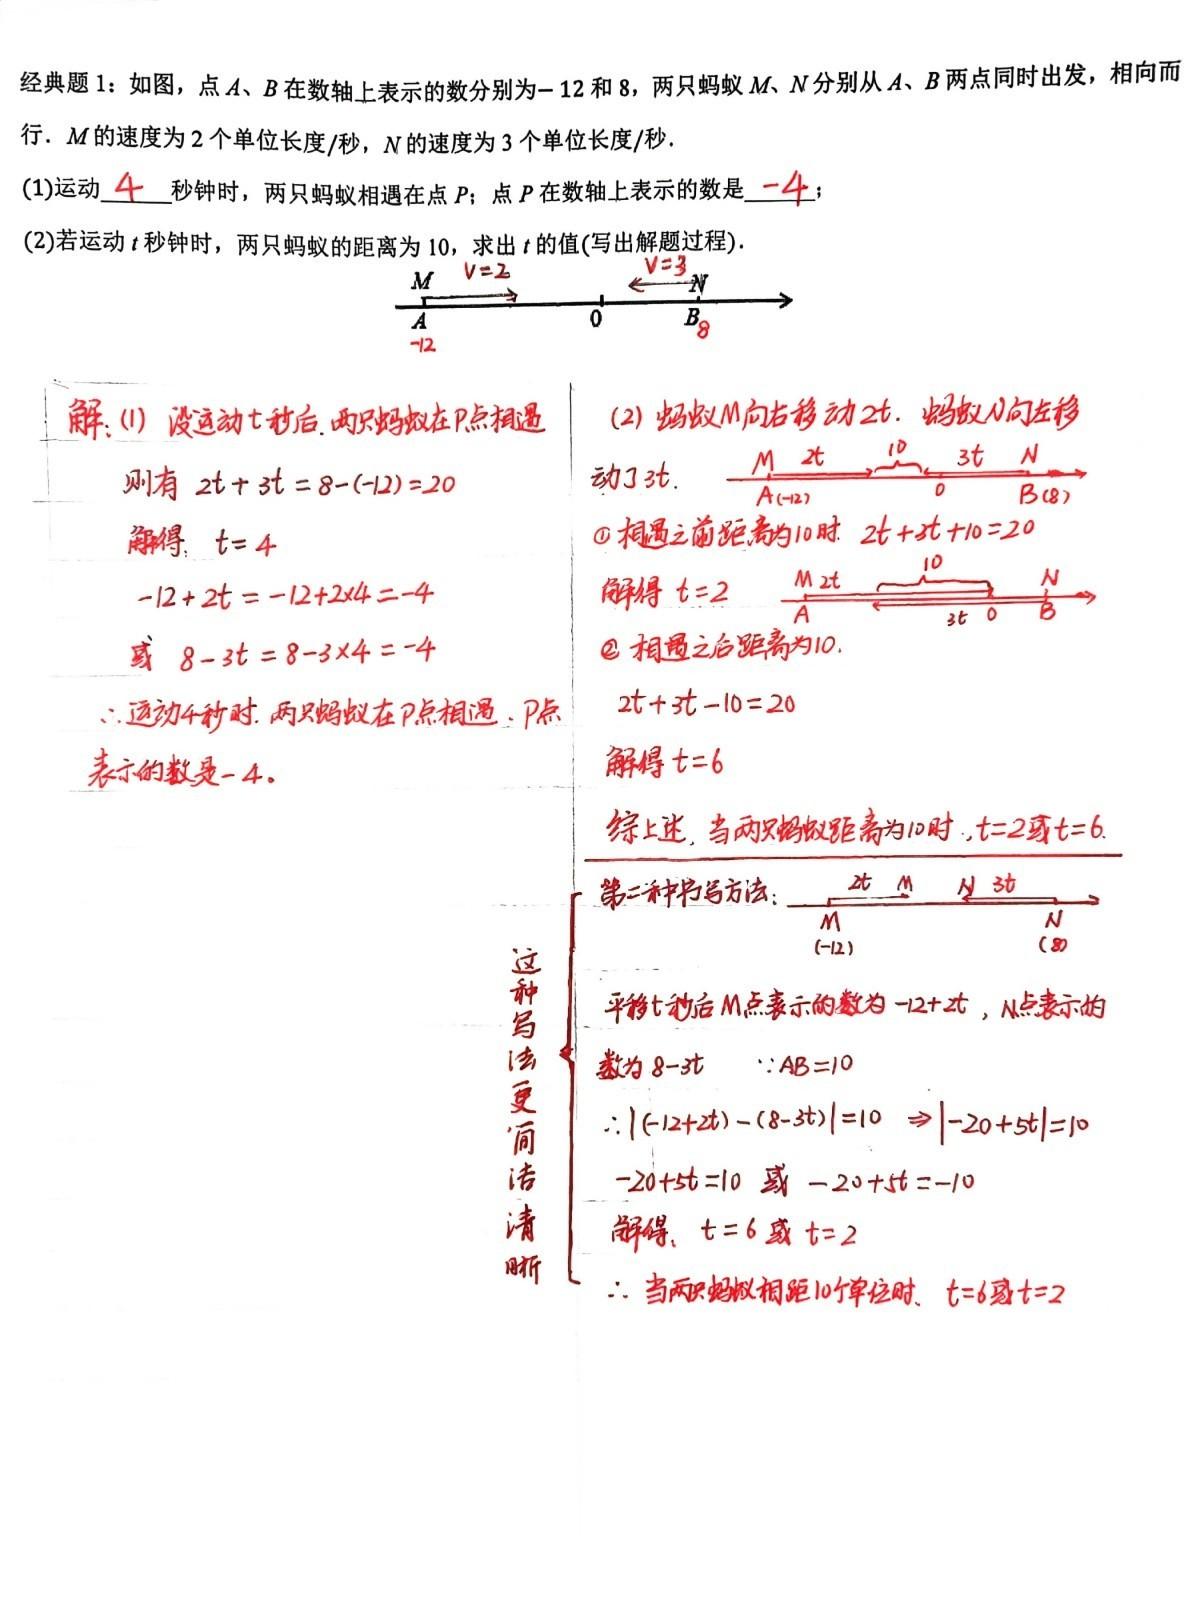 经典题1：如图，点A、B在数轴上表示的数分别为－12和8，两只蚂蚁M、N分别从A、B两点同时出发，相向而
行．M的速度为2个单位长度/秒，N的速度为3个单位长度/秒．
(1)运动 4 秒钟时，两只蚂蚁相遇在点P；点P在数轴上表示的数是 -4 ；
(2)若运动t秒钟时，两只蚂蚁的距离为10，求出t的值(写出解题过程)．
M V=2 V=3 N
A 0 B 8
-12
解：(1) 设运动t秒后.两只蚂蚁在P点相遇
则有 2t+3t=8-(-12)=20
解得：t=4
-12+2t=-12+2×4=-4
或 8-3t=8-3×4=-4
∴运动4秒时.两只蚂蚁在P点相遇、P点
表示的数是-4。
(2) 蚂蚁M向右移动2t. 蚂蚁N向左移
动了3t.
M 2t 10 3t N
A(-12) 0 B(8)
①相遇之前距离为10时. 2t+3t+10=20
解得 t=2
M 2t 10 N
A 3t 0 B
②相遇之后距离为10.
2t+3t-10=20
解得 t=6
综上述,当两只蚂蚁距离为10时,t=2或t=6.
第二种书写方法：
2t M N 3t
M N
(-12) (8)
平移t秒后M点表示的数为-12+2t，N点表示的
数为8-3t ∵AB=10
∴|(-12+2t)-(8-3t)|=10 ⇒|-20+5t|=10
-20+5t=10 或 -20+5t=-10
解得：t=6或t=2
∴当两只蚂蚁相距10个单位时、t=6或t=2
这种写法更简洁清晰